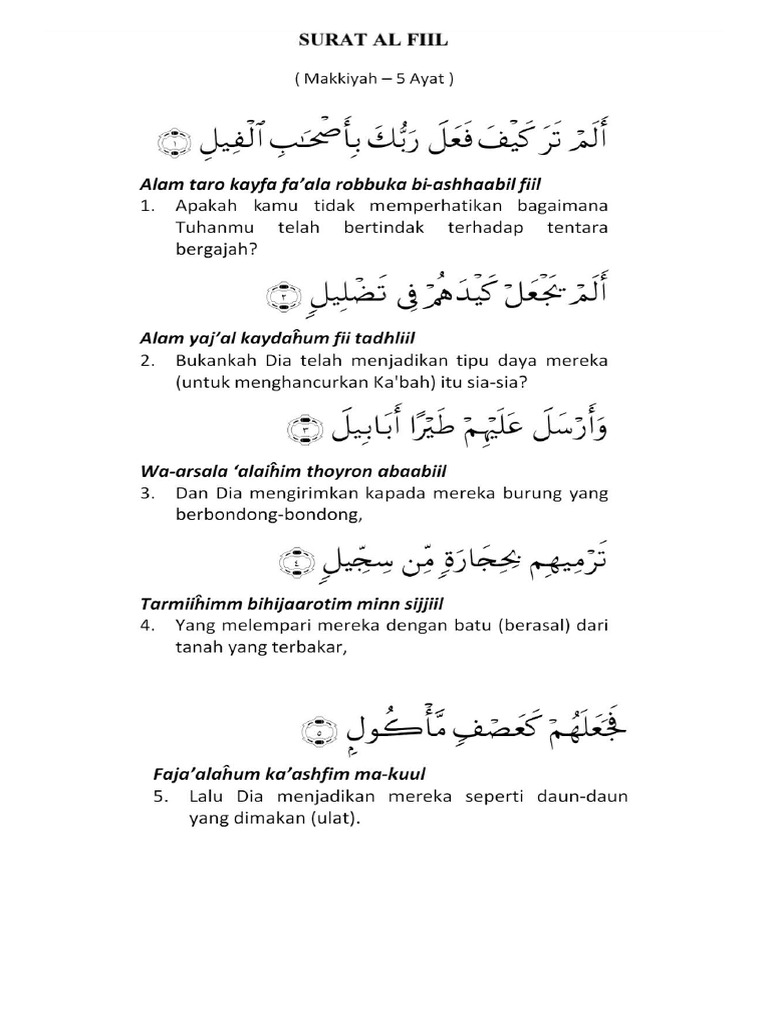 SURAT AL FIIL
( Makkiyah – 5 Ayat )
أَلَمْ تَرَ كَيْفَ فَعَلَ رَبُّكَ بِأَصْحَٰبِ ٱلْفِيلِ ١
Alam taro kayfa fa’ala robbuka bi-ashhaabil fiil
1. Apakah kamu tidak memperhatikan bagaimana
Tuhanmu telah bertindak terhadap tentara
bergajah?
أَلَمْ يَجْعَلْ كَيْدَهُمْ فِى تَضْلِيلٍ ٢
Alam yaj’al kaydaĥum fii tadhliil
2. Bukankah Dia telah menjadikan tipu daya mereka
(untuk menghancurkan Ka'bah) itu sia-sia?
وَأَرْسَلَ عَلَيْهِمْ طَيْرًا أَبَابِيلَ ٣
Wa-arsala ‘alaiĥim thoyron abaabiil
3. Dan Dia mengirimkan kapada mereka burung yang
berbondong-bondong,
تَرْمِيهِم بِحِجَارَةٍ مِّن سِجِّيلٍ ٤
Tarmiiĥimm bihijaarotim minn sijjiil
4. Yang melempari mereka dengan batu (berasal) dari
tanah yang terbakar,
فَجَعَلَهُمْ كَعَصْفٍ مَّأْكُولٍۭ ٥
Faja’alaĥum ka’ashfim ma-kuul
5. Lalu Dia menjadikan mereka seperti daun-daun
yang dimakan (ulat).